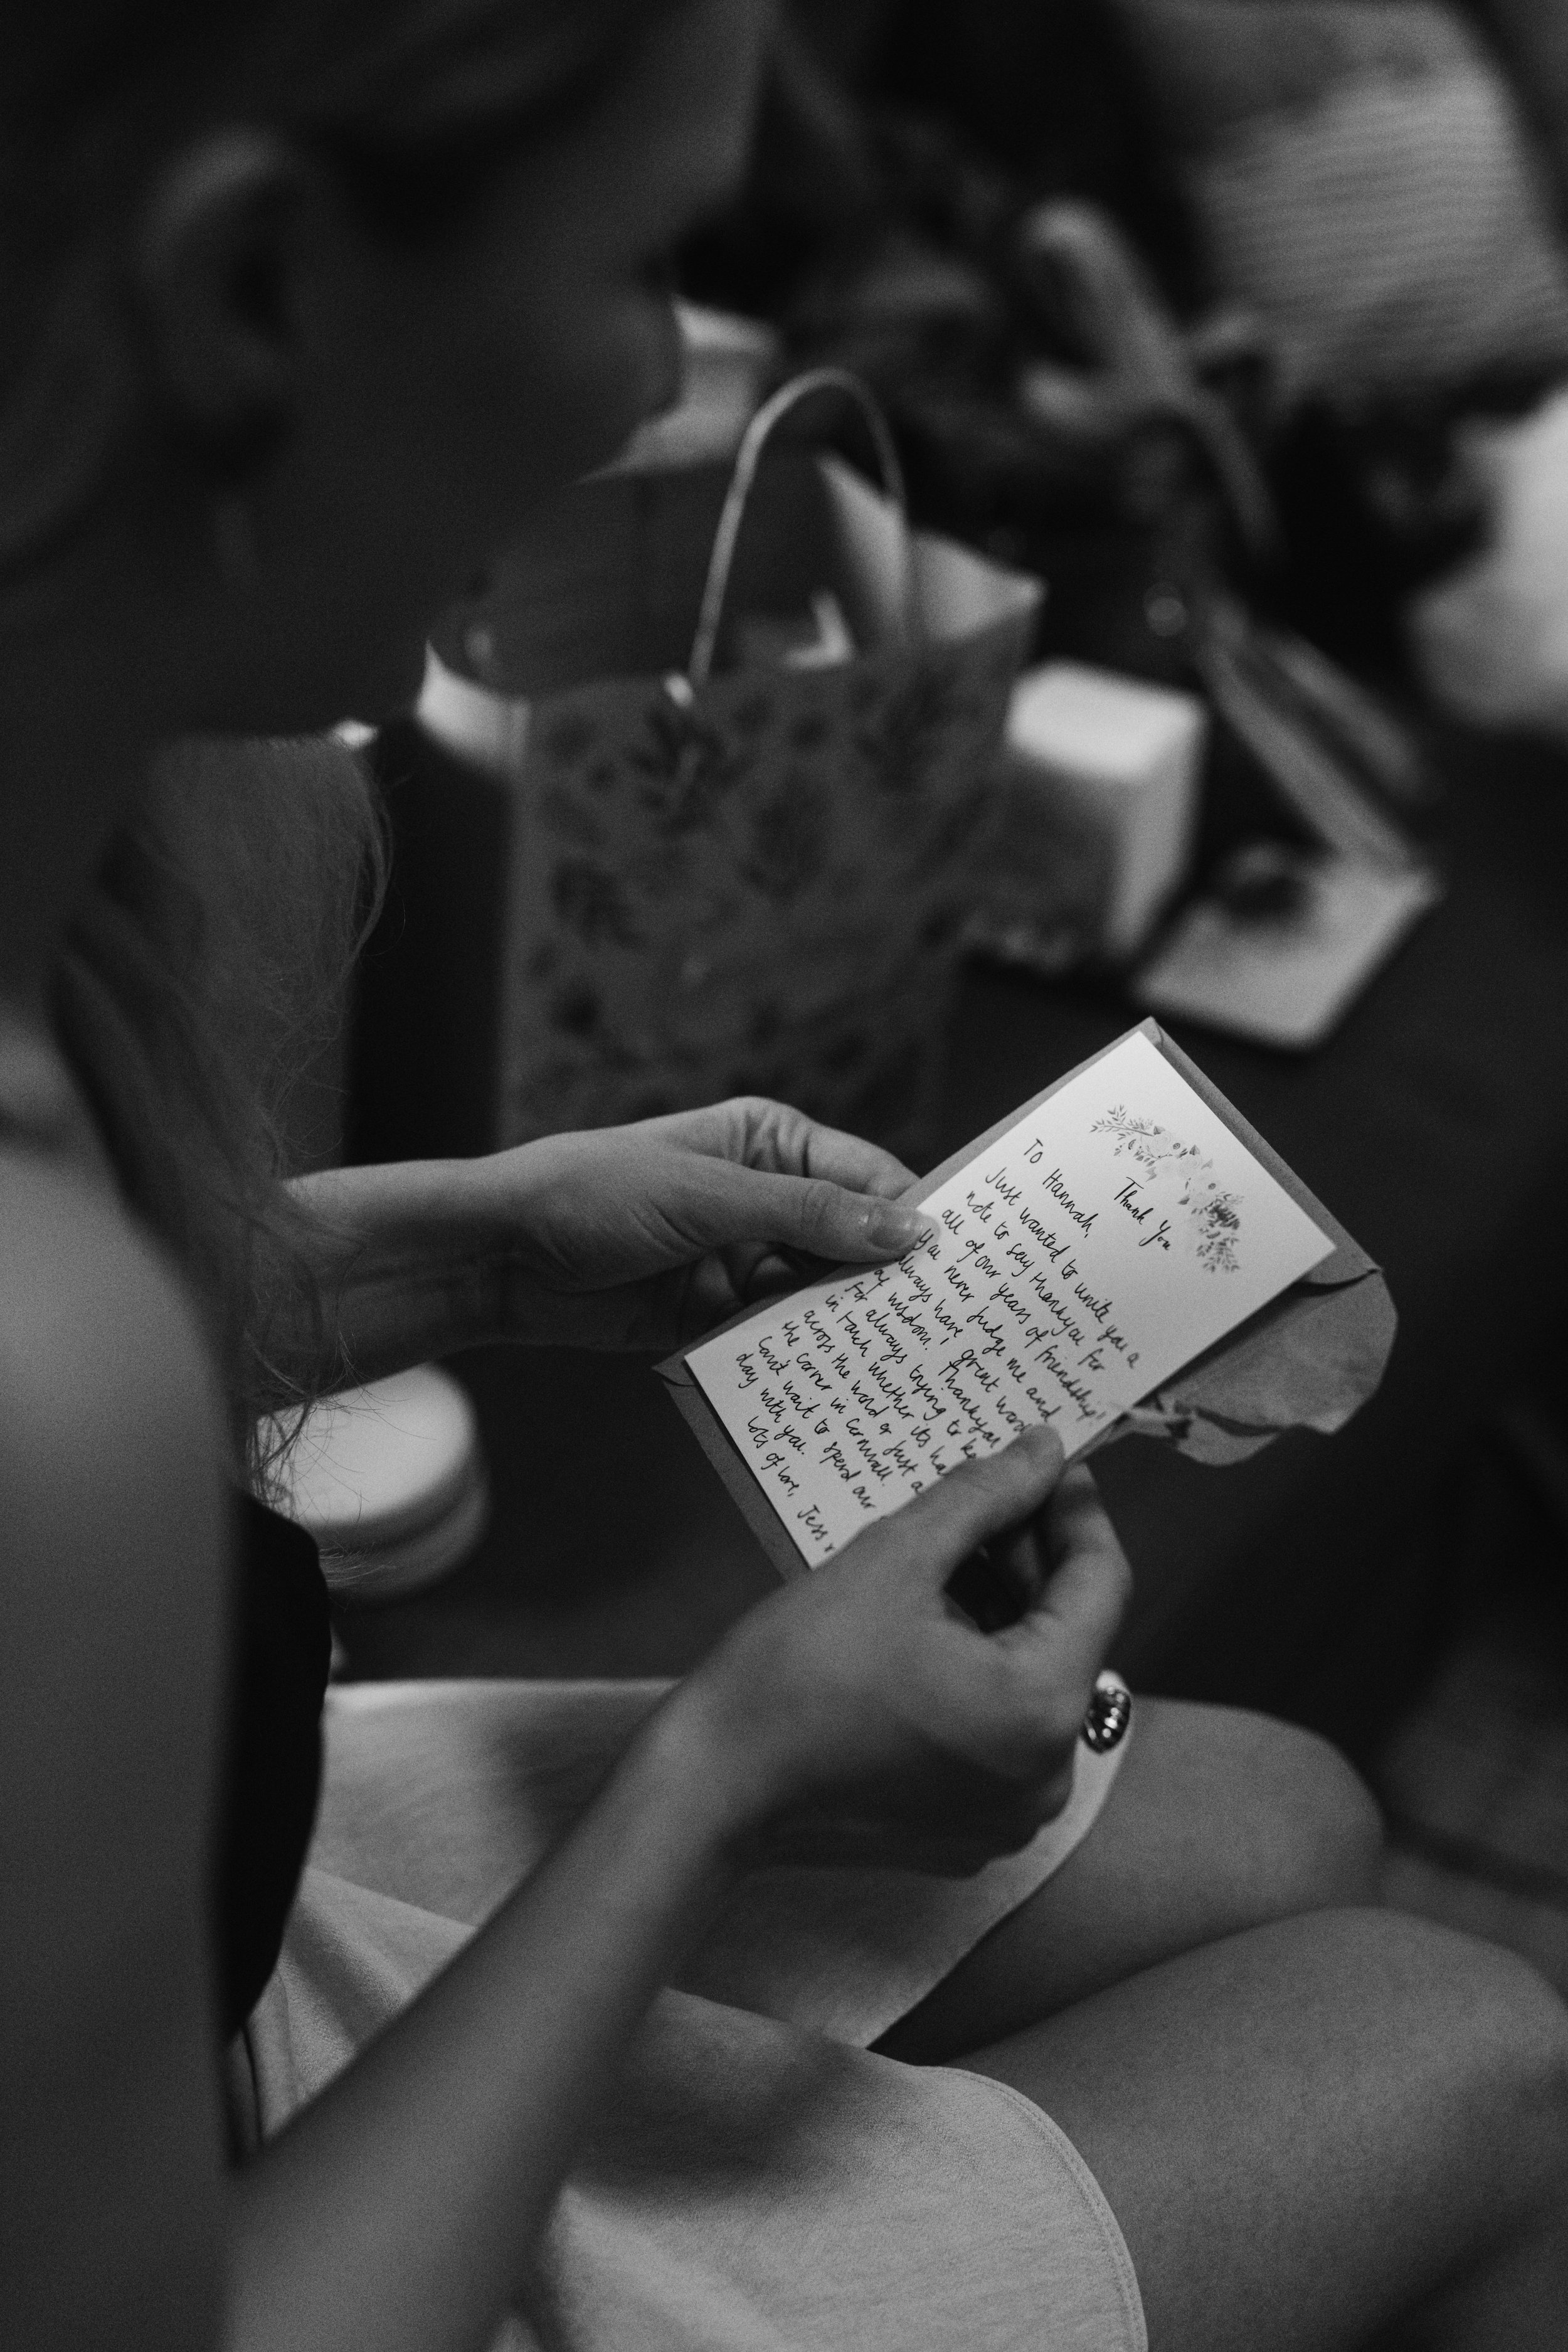 Thank You
To Hannah,
Just wanted to write you a
note to say thankyou for
all of our years of friendship!
You never judge me and
always have great
of wisdom. Thankyou
for always trying to
in touch whether its
across the world or just
the corner in Cornwall.
Can't wait to spend our
day with you.
Lots of love, Jess x